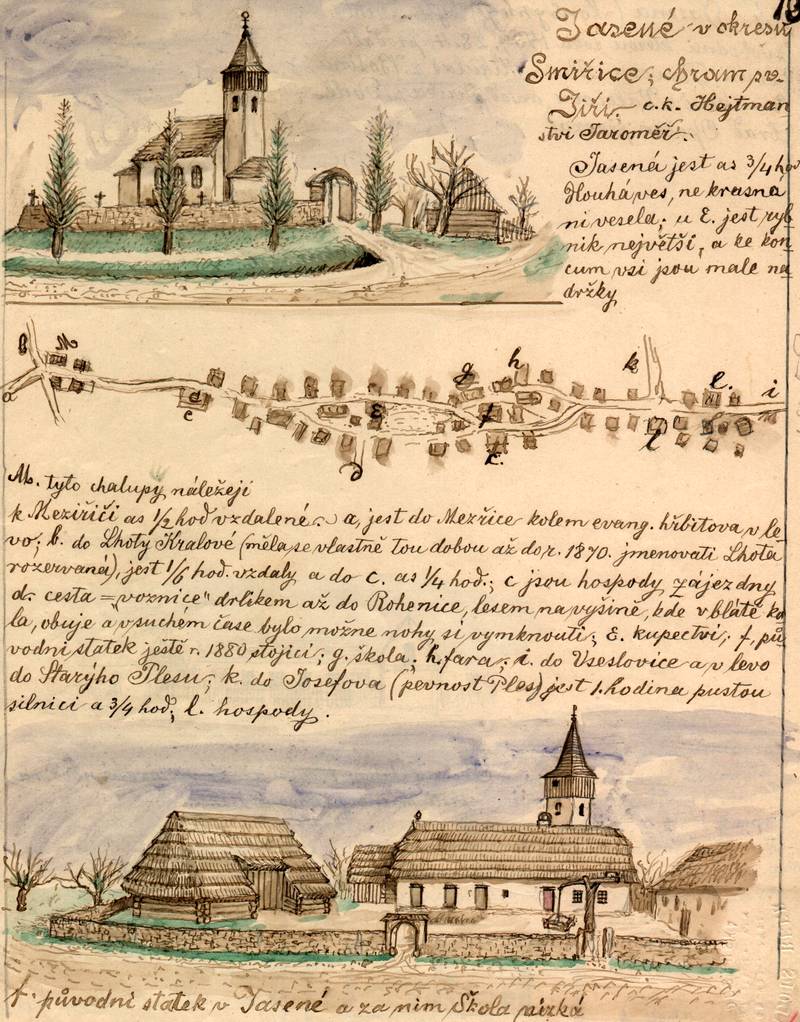 13
Jasené v okresu
Smiřice; chram sv.
Jiří. c.k. Hejtman
stvi Jaroměř.
Jasená jest as 3/4 hod
dlouhá ves, ne krasna
ni vesela; u E. jest ryb
nik největši, a ke kon
cum vsi jsou male na
držky
b M. g h k e. i
a d E f l
c d c.
M. tyto chalupy náležeji
k Meziřiči as 1/2 hod vzdalené. a, jest do Mezřice kolem evang. hřbitova v le
vo; b. do Lhoty Kralové (měla se vlastně tou dobou až do r. 1870. jmenovati Lhota
rozervana), jest 1/6 hod. vzdaly a do c. as 1/4 hod.; c jsou hospody zájezdny
d. cesta = "voznice" drlikem až do Rohenice, lesem na vyšině, kde v blátě ko
la, obuje a v suchém čase bylo možne nohy si vymknouti; E. kupectvi; f, pů
vodni statek ještě r. 1880 stojici; g. škola; h. fara; i. do Vseslovice a v levo
do Starýho Plesu; k. do Josefova (pevnost Ples) jest 1. hodina pustou
silnici a 3/4 hod; l. hospody.
f. původni statek v Jasené a za nim Škola nizká